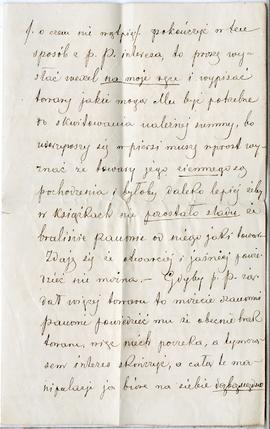 /. o czem nie wątpię/. pokończyć w ten
sposób z p. P. interesa, to proszę wy-
słać weksel na moje ręce i wypisać
towary jakie mogą Mu być potrzebne
do skwitowania należnej summy, bo
uderzywszy się w piersi muszę wprost wy-
znać że towary jego ciemnego są
pochodzenia i byłoby daleko lepiej żeby
w książkach nie pozostało śladu że
braliście Panowie od niego jaki towar.
Zdaje się że otwarciej i jaśniej powie-
dzieć nie można. — Gdyby p. P. żą-
dał więcej towaru to możecie Panowie
powiedzieć mu że obecnie brak
towaru, więc niech poczeka, a tymcza-
sem interes skończyć, a całą tę ma-
nipulację ja biorę na siebie